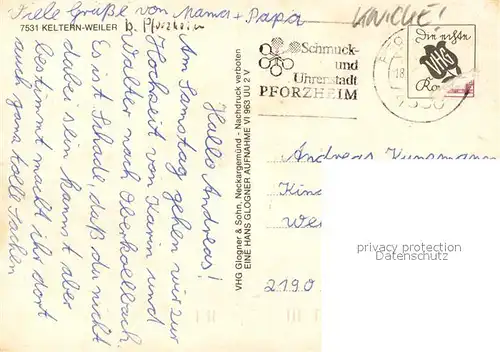 Viele Grüße von Mama + Papa
7531 KELTERN-WEILER
b. Pforzheim
KNICKE!
Hallo Andreas!
Am Samstag gehen wir zur
Hochzeit von Karin und
Walter nach Oberkollbach.
Es ist Schade, daß du nicht
dabei sein kannst aber
bestimmt macht ihr dort
auch ganz tolle Sachen
VHG Glogner & Sohn, Neckargemünd - Nachdruck verboten
EINE HANS GLOGNER AUFNAHME VI 963 UU 2 V
Schmuck-
und
Uhrenstadt
PFORZHEIM
18.
7530
Die echte
VHG
Andreas
2190
privacy protection
Datenschutz